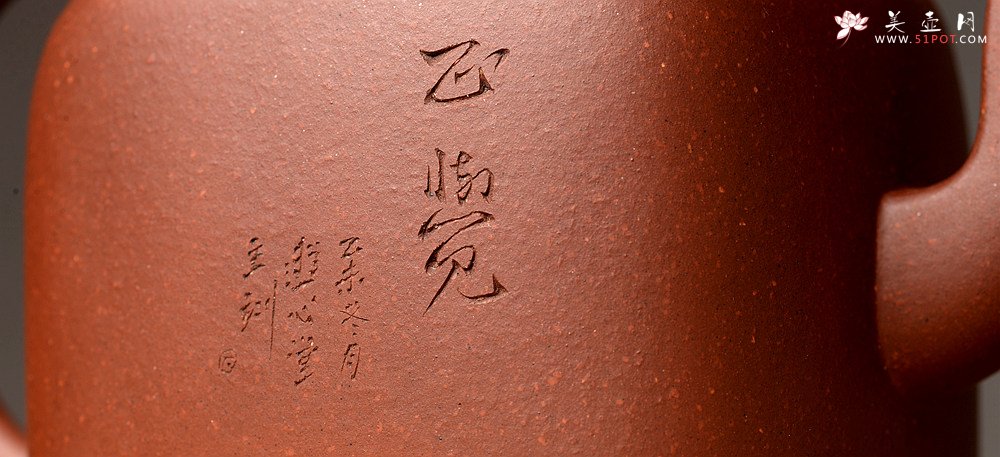 美壶网
WWW.51POT.COM
正觉
乙未冬月
澄心堂
主刻